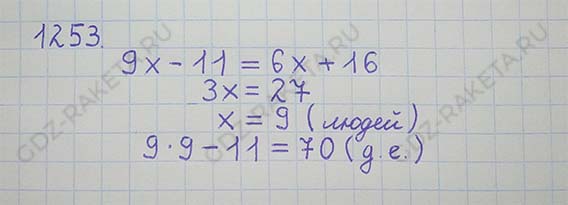 1253.
9x - 11 = 6x + 16
3x = 27
x = 9 (людей)
9·9 - 11 = 70 (д.е.)
GDZ-RAKETA.RU
GDZ-RAKETA.RU
GDZ-RAKETA.RU